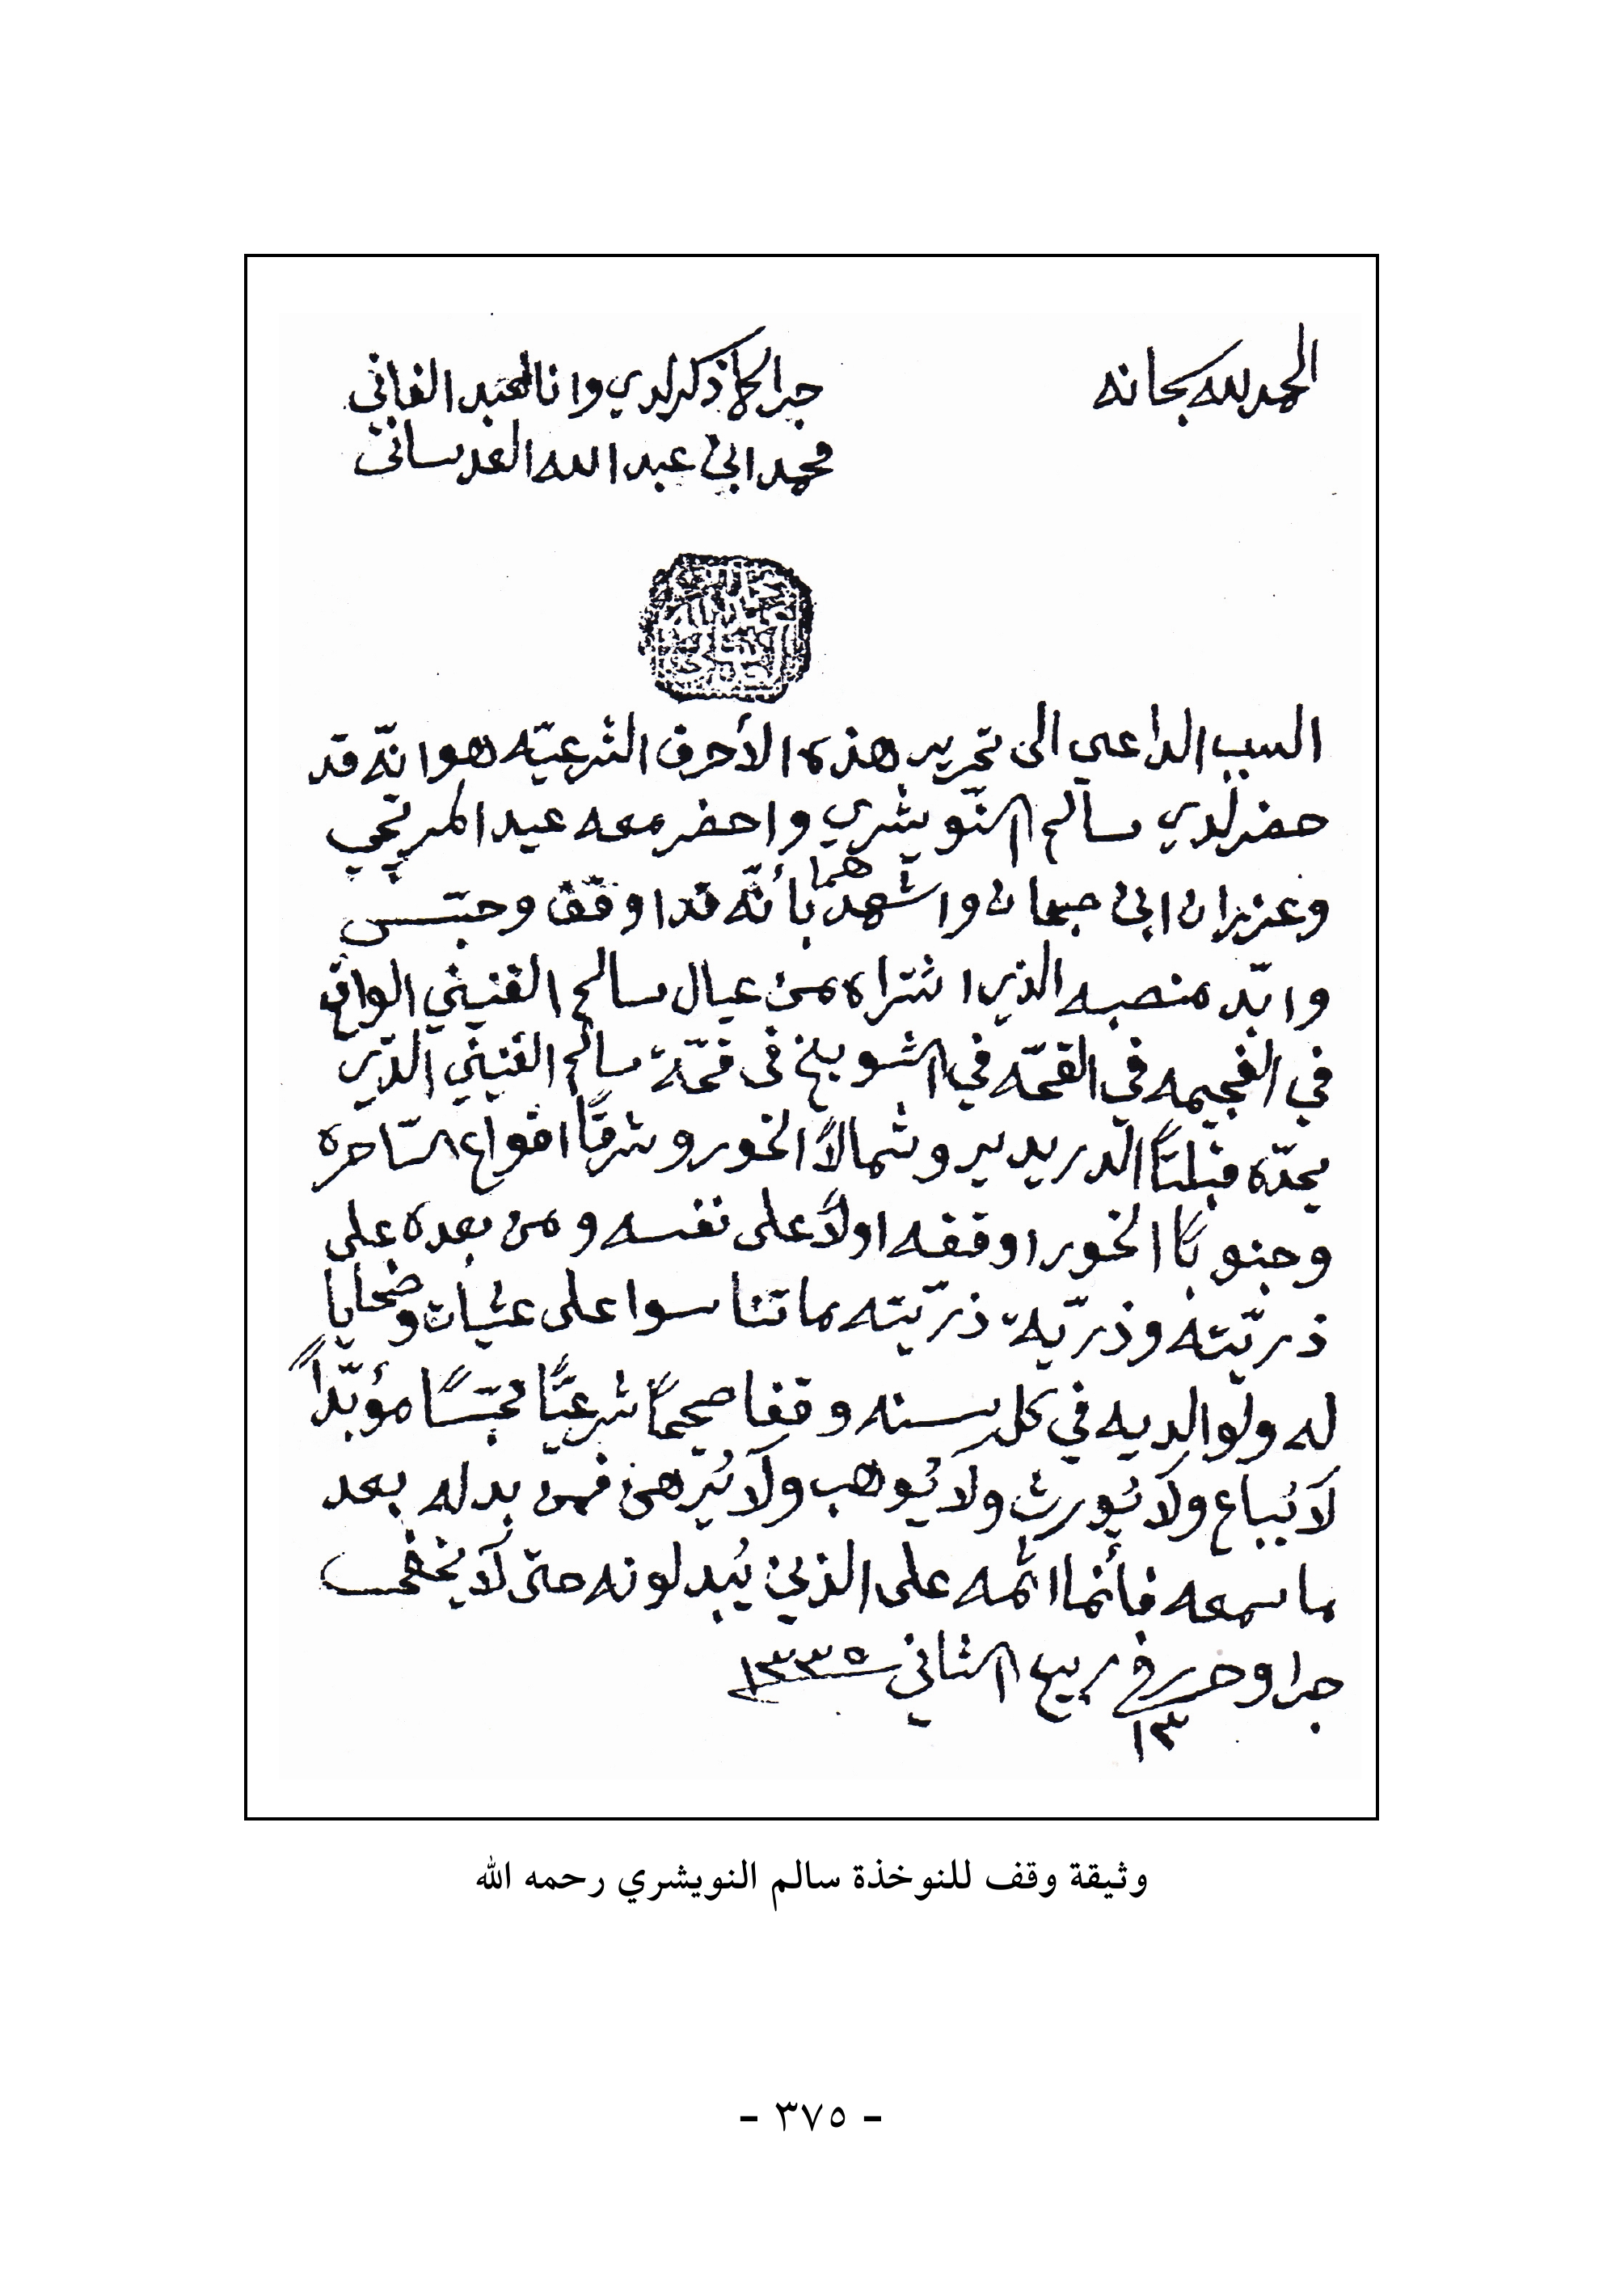 الحمد لله سبحانه
جرا كما ذكر لدي وانا العبد الفاني
محمد ابن عبد الله العدساني
السبب الداعي الى تحرير هذه الأحرف الشرعيّه هو انّه قد
حضر لدي سالم النّويشري واحضر معه عيد المريخي
وعزيران ابن جمعان واشهدهما بأنّه قد اوقف وحبّس
وابّد منصبه الذي اشتراه من عيال سالم القنيني الواقع
في الغجيمه في القحّه في الشويخ في قحّة سالم القنيني الذّي
يحدّه قبلتًا الدريدير وشمالًا الخور وشرقًا افواع السّاحره
وجنوبًا الخور اوقفه اولًا على نفسه ومن بعده على
ذريّته وذريّة ذريّته ما تناسوا على عشيات وضحايا
له ولوالديه في كل سنه وقفا صحيحًا شرعيًّا محبّسًا مؤبّدًا
لَا يُباع ولَا يُورث ولا يُوهب ولَا يُرهن فمن بدله بعد
ما سمعه فأنما اثمه على الذين يُبدلونه حتّى لَا يخفى
جرا وحرر في ١٣ ربيع الثاني ١٣٣٥
وثيقة وقف للنوخذة سالم النويشري رحمه الله
- ٣٧٥ -